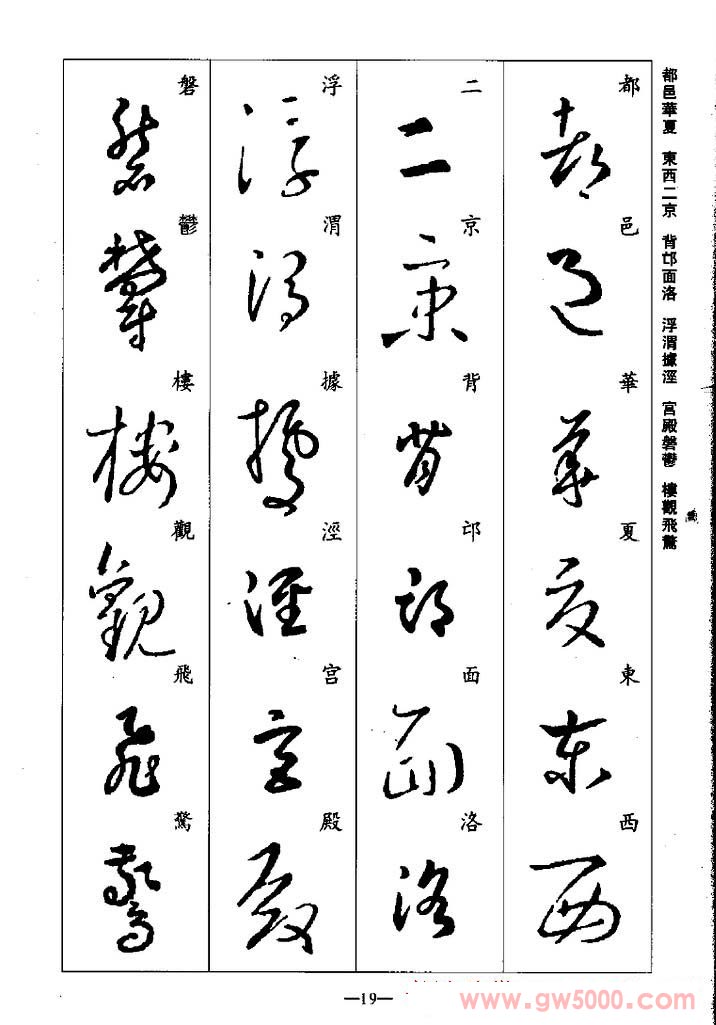 都邑華夏 東西二京 背邙面洛 浮渭據涇 宮殿磐鬱 樓觀飛驚
都邑華夏東西
二京背邙面洛
浮渭據涇宮殿
磐鬱樓觀飛驚
—19—
www.gw5000.com